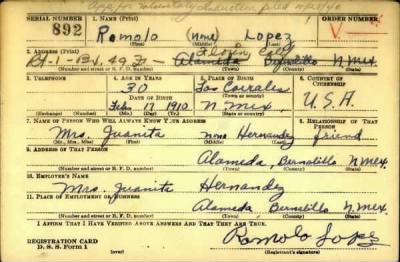 App for Voluntary Induction filed
SERIAL NUMBER
1. NAME (Print)
ORDER NUMBER
892
Romolo (none) Lopez
V
(First) (Middle) (Last)
2. ADDRESS (Print)
Alameda Bernalillo N Mex.
(Number and street or R. F. D. number) (Town) (County) (State)
3. TELEPHONE
4. AGE IN YEARS
5. PLACE OF BIRTH
6. COUNTRY OF CITIZENSHIP
30
Los Corrales
DATE OF BIRTH
(Town or county)
Feb 17 1910
N Mex.
U.S.A.
(Exchange) (Number)
(Mo.) (Day) (Yr.)
(State or country)
7. NAME OF PERSON WHO WILL ALWAYS KNOW YOUR ADDRESS
8. RELATIONSHIP OF THAT PERSON
Mrs. Juanita none Hernandez friend
(Mr., Mrs., Miss) (First) (Middle) (Last)
9. ADDRESS OF THAT PERSON
Alameda, Bernalillo N Mex.
(Number and street or R. F. D. number) (Town) (County) (State)
10. EMPLOYER'S NAME
Mrs. Juanita Hernandez
11. PLACE OF EMPLOYMENT OR BUSINESS
Alameda, Bernalillo N Mex.
(Number and street or R. F. D. number) (Town) (County) (State)
I AFFIRM THAT I HAVE VERIFIED ABOVE ANSWERS AND THAT THEY ARE TRUE.
REGISTRATION CARD
D. S. S. Form 1
Romolo Lopez
(Registrant's signature)